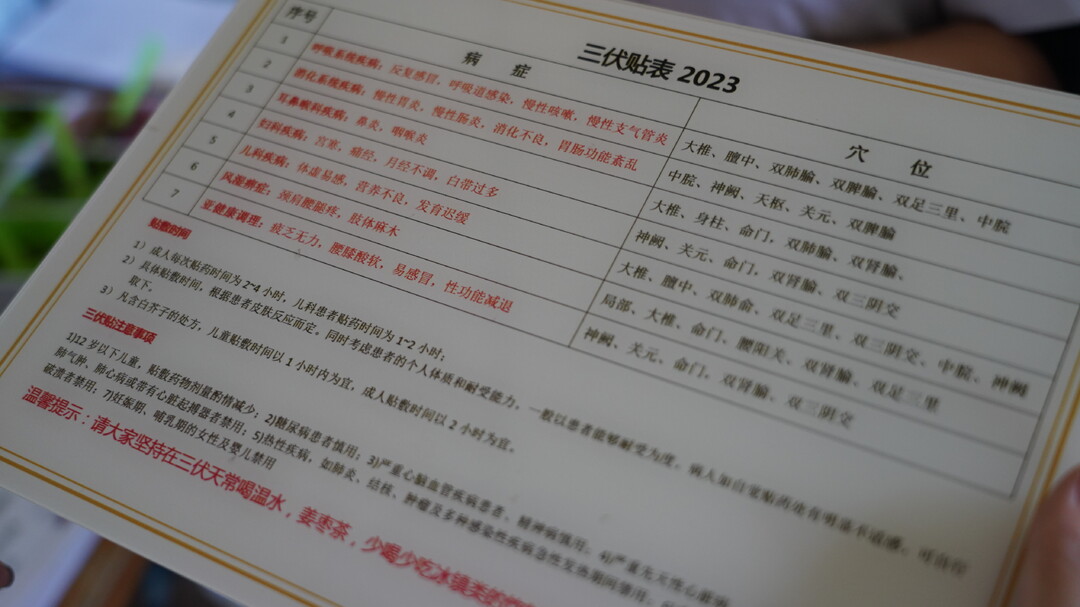 三伏贴表 2023
序号 病 症 穴 位
1 呼吸系统疾病：反复感冒，呼吸道感染，慢性咳嗽，慢性支气管炎 大椎、膻中、双肺腧、双脾腧、双足三里、中脘
2 消化系统疾病：慢性胃炎，慢性肠炎，消化不良，胃肠功能紊乱 中脘、神阙、天枢、关元、双脾腧
3 耳鼻喉科疾病：鼻炎，咽喉炎 大椎、身柱、命门，双肺腧、双肾腧、
4 妇科疾病：宫寒，痛经，月经不调，白带过多 神阙、关元、命门，双肾腧、双三阴交
5 儿科疾病：体虚易感，营养不良，发育迟缓 大椎、膻中、双肺俞、双足三里、双三阴交、中脘、神阙
6 风湿痹症：颈肩腰腿疼，肢体麻木 局部、大椎、命门，腰阳关、双肾腧、双足三里
7 亚健康调理：疲乏无力，腰膝酸软，易感冒，性功能减退 神阙、关元、命门，双肾腧、双三阴交
贴敷时间
1）成人每次贴药时间为 2~4 小时，儿科患者贴药时间为 1~2 小时；
2）具体贴敷时间，根据患者皮肤反应而定，同时考虑患者的个人体质和耐受能力，一般以患者能够耐受为度，病人如自觉贴药处有明显不适感，可自行
取下。
3）凡含白芥子的处方，儿童贴敷时间以 1 小时内为宜，成人贴敷时间以 2 小时为宜。
三伏贴注意事项
1)12 岁以下儿童，贴敷药物剂量酌情减少；2)糖尿病患者慎用；3)严重心脑血管疾病患者、精神病慎用。4)严重先天性心脏病
肺气肿、肺心病或带有心脏起搏器者禁用；5)热性疾病，如肺炎、结核、肿瘤及多种感染性疾病急性发热期间禁用。
破溃者禁用；7)妊娠期、哺乳期的女性及婴儿禁用
温馨提示：请大家坚持在三伏天常喝温水，姜枣茶，少喝少吃冰镇类的